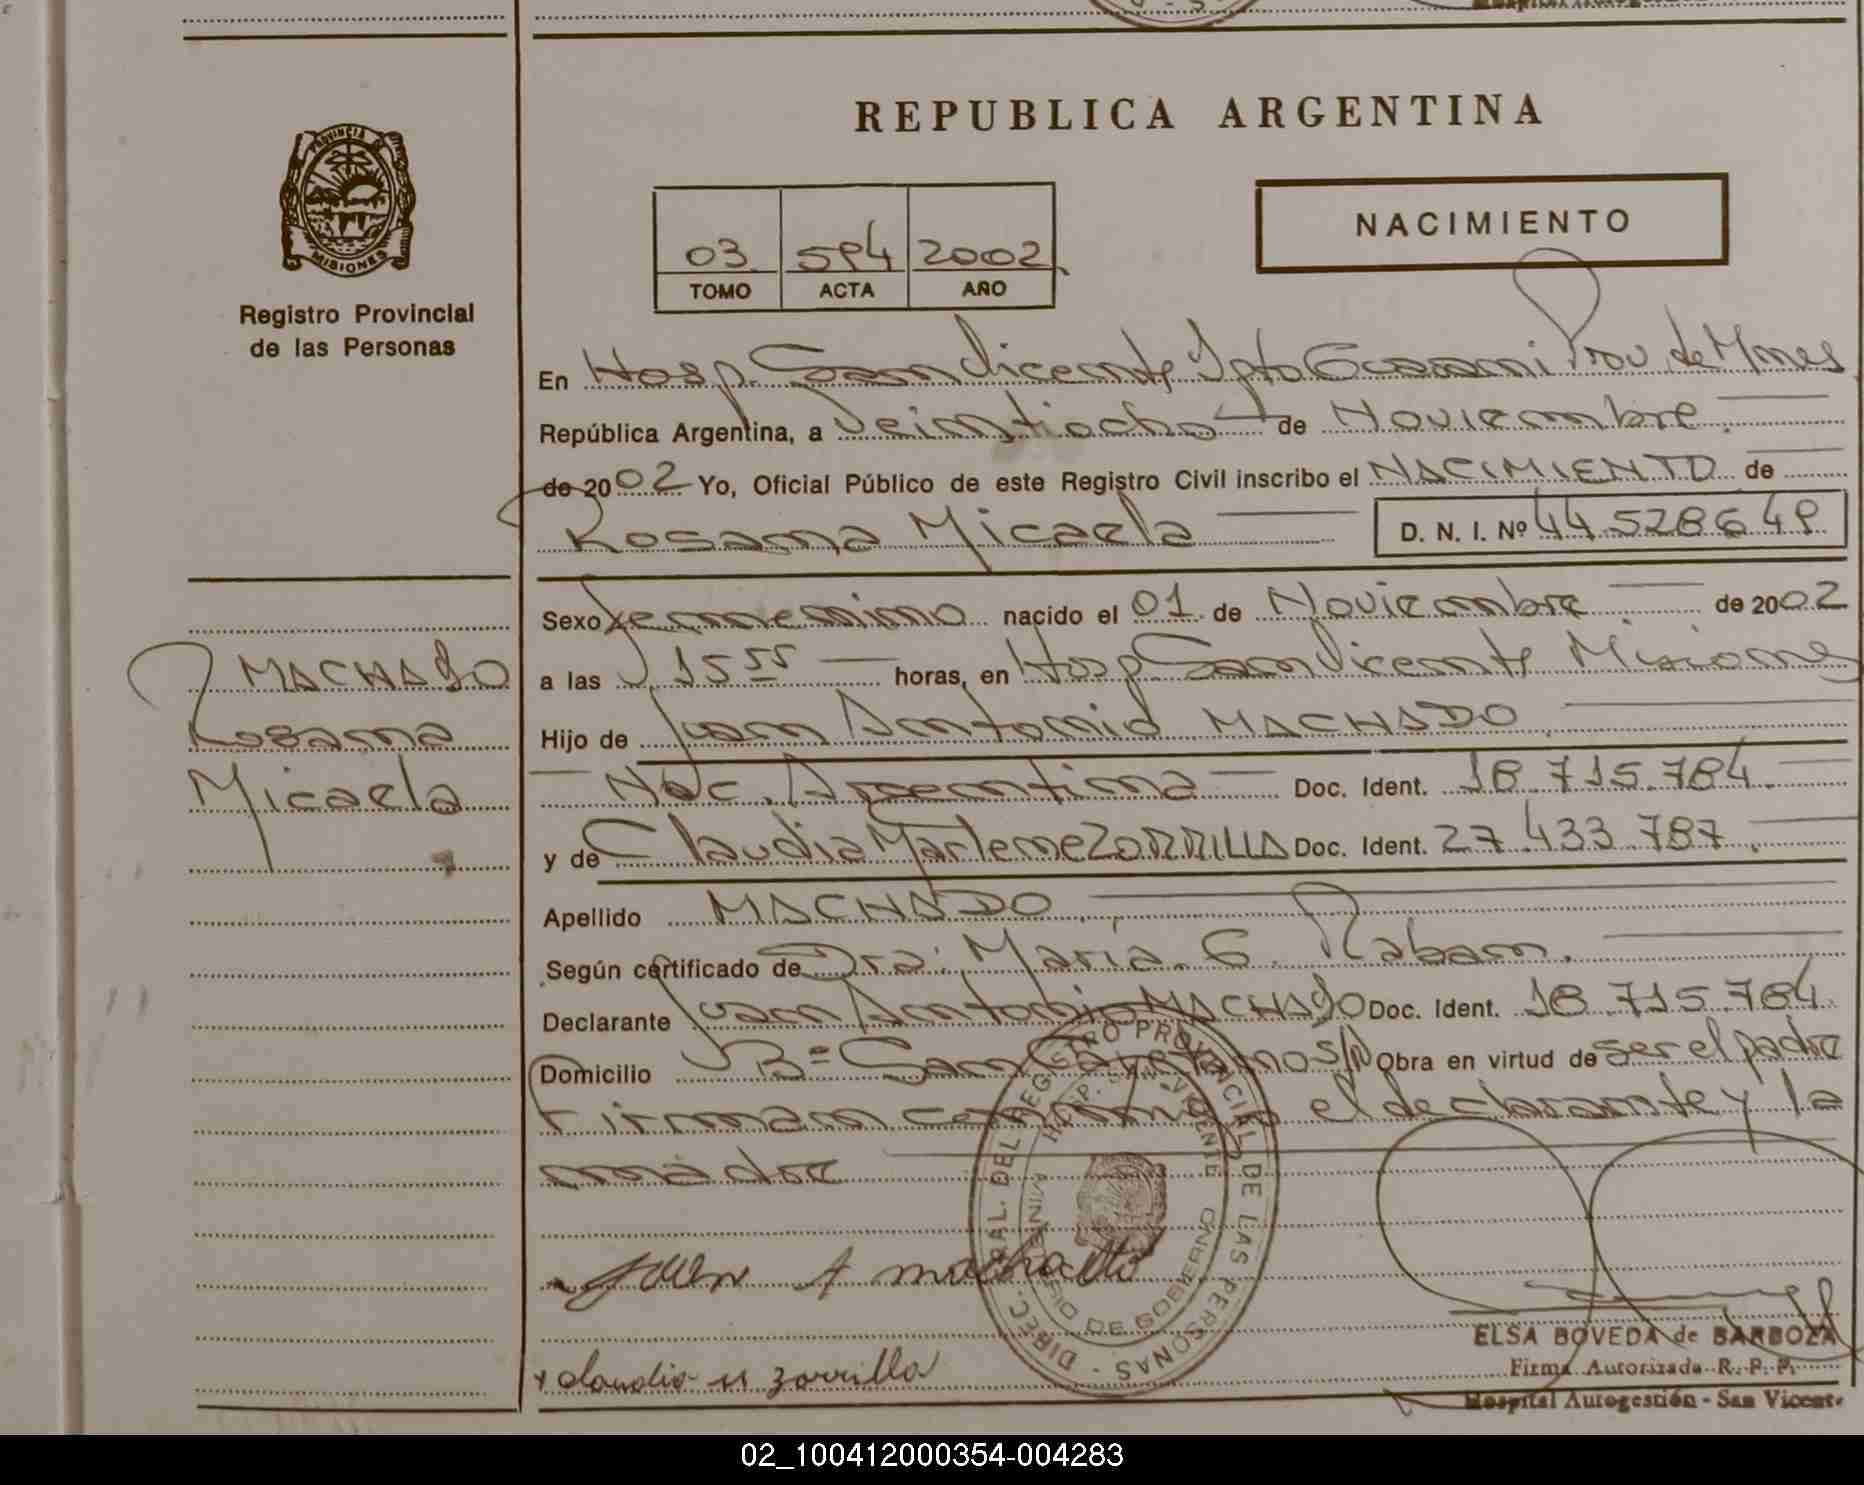 REPUBLICA ARGENTINA
PROVINCIA
MISIONES
Registro Provincial
de las Personas
03 594 2002
TOMO ACTA AÑO
NACIMIENTO
En Hosp. San Vicente Dpto Guarani Prov. de Mnes
República Argentina, a Veintiocho de Noviembre.
de 2002 Yo, Oficial Público de este Registro Civil inscribo el NACIMIENTO de
Rosana Micaela D. N. I. Nº 44.528649
Sexo femenino nacido el 01 de Noviembre de 2002
a las 15 55 horas, en Hosp San Vicente Misiones
MACHADO
Rosana
Micaela
Hijo de Juan Antonio MACHADO
Nac. Argentina Doc. Ident. 18.715.784
y de Claudia Marlene ZORRILLA Doc. Ident. 27.433.787.
Apellido MACHADO
Según certificado de Dra. María. G. Raban.
Declarante Juan Antonio MACHADO Doc. Ident. 18.715.784
Domicilio Bº San Cayetano S/N Obra en virtud de ser el padre
Firman conmigo el declarante y la
madre
Juan A machado
DIREC. GRAL. DEL REGISTRO PROVINCIAL DE LAS PERSONAS
HOSP. SAN VICENTE
MINISTERIO DE GOBIERNO
ELSA BOVEDA de BARBOZA
Firma Autorizada R. P. P.
Hospital Autogestión - San Vicente
claudia M zorrilla
02_100412000354-004283